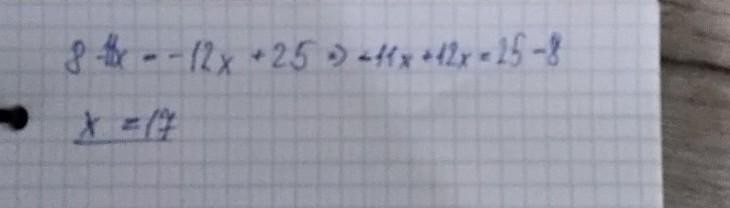 8 -11x = -12x + 25 => -11x + 12x = 25 - 8
x = 17